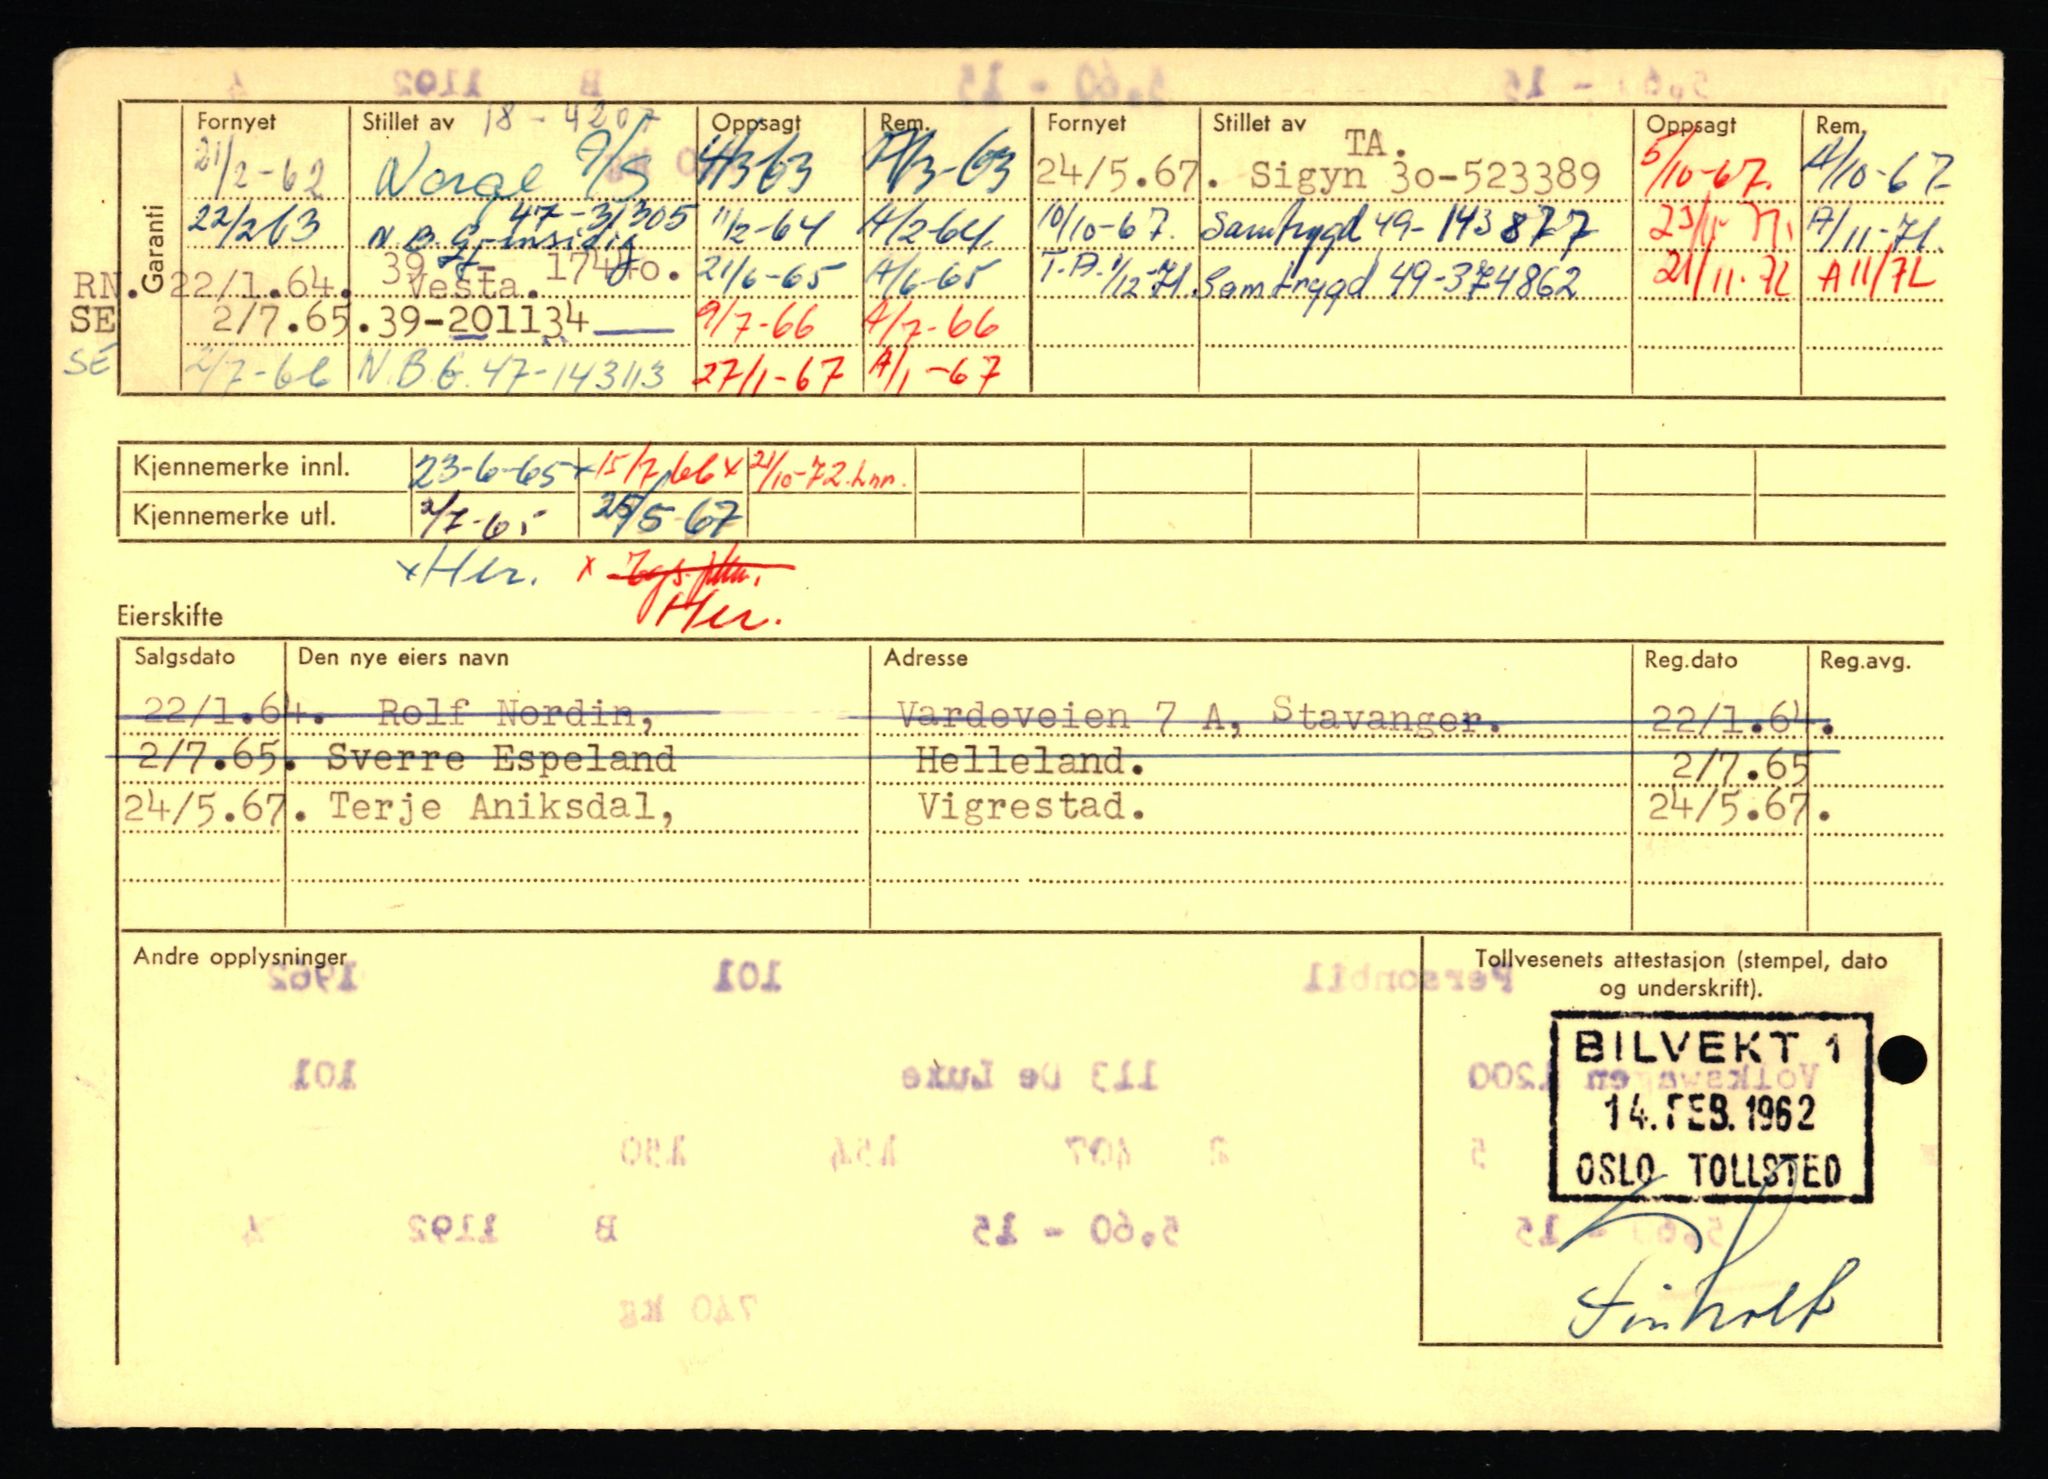 Garanti
Fornyet Stillet av 18-4207 Oppsagt Rem. Fornyet Stillet av Oppsagt Rem.
21/2-62 Norge A/S 4/3-63 A/3-63 24/5.67. TA. Sigyn 3o-523389 5/10-67. A/10-67.
22/2 63 N.B.G. 47-31305 11/2-64 A/2-64. 10/10-67. Samtrygd 49-143877 23/11-71. A/11-71.
RN. 22/1.64. 39 - 17440. Vesta. 21/6-65 A/6-65 T.A. 1/12-71. Samtrygd 49-374862 21/11-72 A 11/72
SE 2/7.65. 39-201134 9/7-66 A/7-66
SE 2/7-66 N.B.G. 47-143113 27/1-67 A/1-67
Kjennemerke innl. 23-6-65 x 15/7 66 x 21/10-72.
Kjennemerke utl. 2/7-65 25/5-67
x Her. x
Her.
Eierskifte
Salgsdato Den nye eiers navn Adresse Reg.dato Reg.avg.
22/1.64. Rolf Nordin, Vardeveien 7 A, Stavanger. 22/1.64.
2/7.65. Sverre Espeland Helleland. 2/7.65
24/5.67. Terje Aniksdal, Vigrestad. 24/5.67.
Andre opplysninger
Tollvesenets attestasjon (stempel, dato
og underskrift).
BILVEKT 1
14. FEB. 1962
OSLO TOLLSTED
1962 101 Personbil
101 113 De Luxe Volkswagen 1200
150 154 407 2 5
4 1192 B 5.60 - 15 5.60 - 15
740 kg